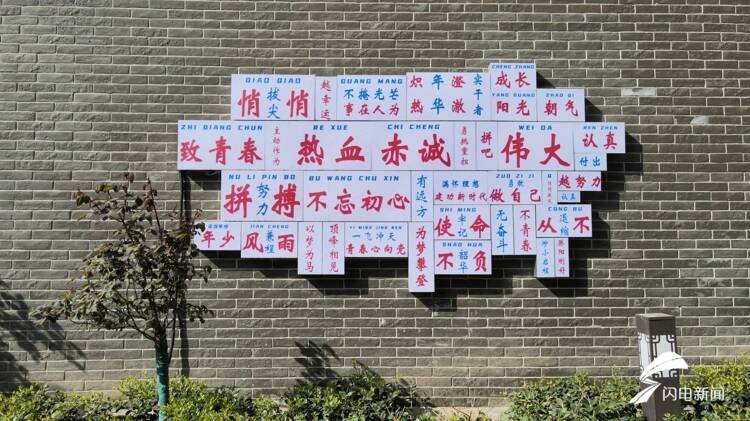 CHENG ZHANG
成长
QIAO QIAO
悄 拔尖 悄
越幸运
GUANG MANG
不掩光芒
事在人为
炽热
年华
澄澈
实干者
YANG GUANG
阳光
ZHAO QI
朝气
ZHI QIANG CHUN
致青春
主动作为
RE XUE
热血
CHI CHENG
赤诚
勇挑重担
拼吧
WEI DA
伟大
REN ZHEN
认真
付出
NU LI PIN BO
拼 努力 搏
BU WANG CHU XIN
不忘初心
有远方
满怀理想
建功新时代
ZUO ZI JI
勇敢
做自己
越努力
认真
年少
JIAN CHENG
风 兼程 雨
以梦为马
顶峰相见
一飞冲天
青春心向党
为梦攀登
SHI MING
使 牢记 命
SHAO HUA
不 韶华 负
无奋斗
不青春
CONG BU
从 退缩 不